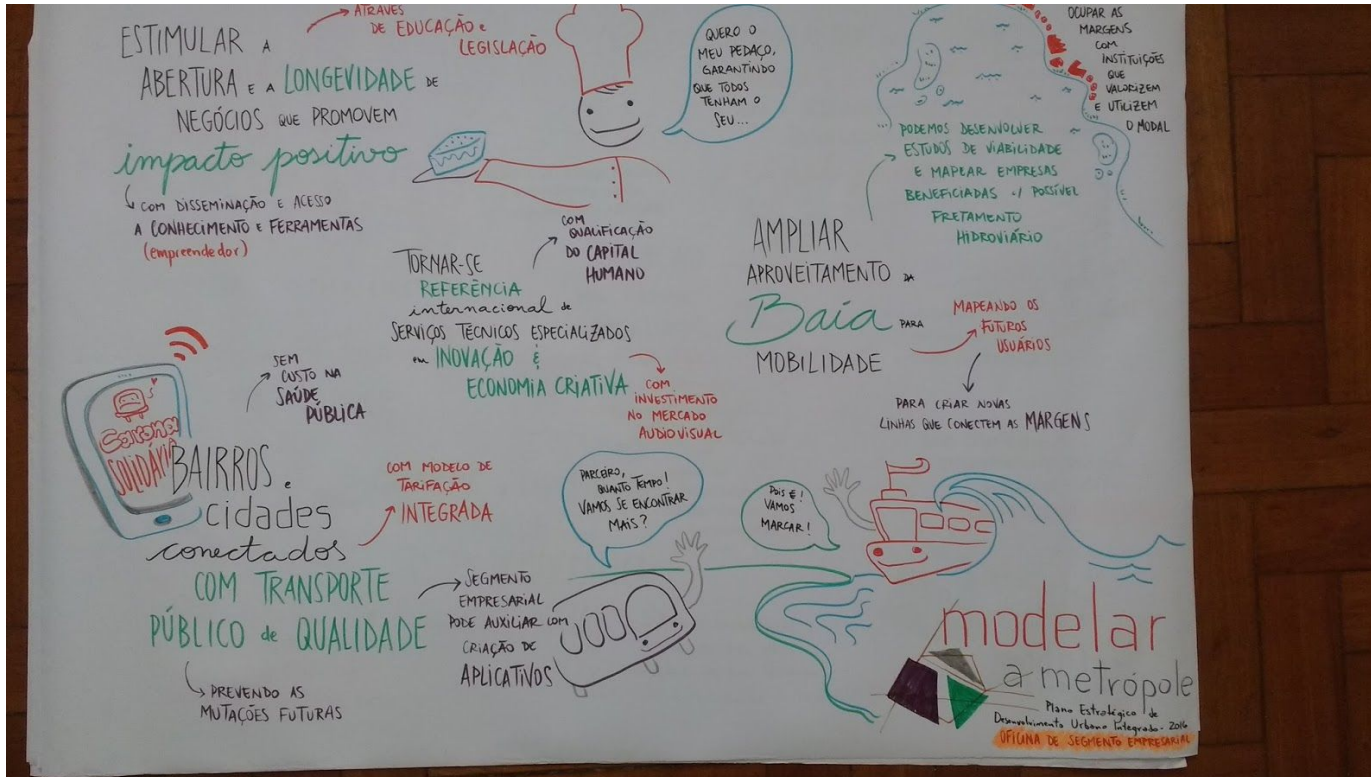 ESTIMULAR A
ABERTURA E A LONGEVIDADE DE
NEGÓCIOS QUE PROMOVEM
impacto positivo
ATRAVÉS
DE EDUCAÇÃO e
LEGISLAÇÃO
COM DISSEMINAÇÃO E ACESSO
A CONHECIMENTO E FERRAMENTAS
(empreendedor)
QUERO O
MEU PEDAÇO,
GARANTINDO
QUE TODOS
TENHAM O
SEU...
OCUPAR AS
MARGENS
COM
INSTITUIÇÕES
QUE
VALORIZEM
E UTILIZEM
O MODAL
PODEMOS DESENVOLVER
ESTUDOS DE VIABILIDADE
E MAPEAR EMPRESAS
BENEFICIADAS c/ POSSÍVEL
FRETAMENTO
HIDROVIÁRIO
TORNAR-SE
REFERÊNCIA
internacional de
SERVIÇOS TÉCNICOS ESPECIALIZADOS
em INOVAÇÃO E
ECONOMIA CRIATIVA
COM
QUALIFICAÇÃO
DO CAPITAL
HUMANO
COM
INVESTIMENTO
NO MERCADO
AUDIOVISUAL
AMPLIAR
APROVEITAMENTO DA
Baía PARA
MOBILIDADE
MAPEANDO OS
FUTUROS
USUÁRIOS
PARA CRIAR NOVAS
LINHAS QUE CONECTEM AS MARGENS
Carona
SOLIDÁRIA
SEM
CUSTO NA
SAÚDE
PÚBLICA
BAIRROS e
cidades
conectados
COM TRANSPORTE
PÚBLICO de QUALIDADE
COM MODELO DE
TARIFAÇÃO
INTEGRADA
PREVENDO AS
MUTAÇÕES FUTURAS
SEGMENTO
EMPRESARIAL
PODE AUXILIAR COM
CRIAÇÃO DE
APLICATIVOS
PARCEIRO,
QUANTO TEMPO!
VAMOS SE ENCONTRAR
MAIS?
POIS É!
VAMOS
MARCAR!
modelar
a metrópole
Plano Estratégico de
Desenvolvimento Urbano Integrado - 2016
OFICINA DE SEGMENTO EMPRESARIAL